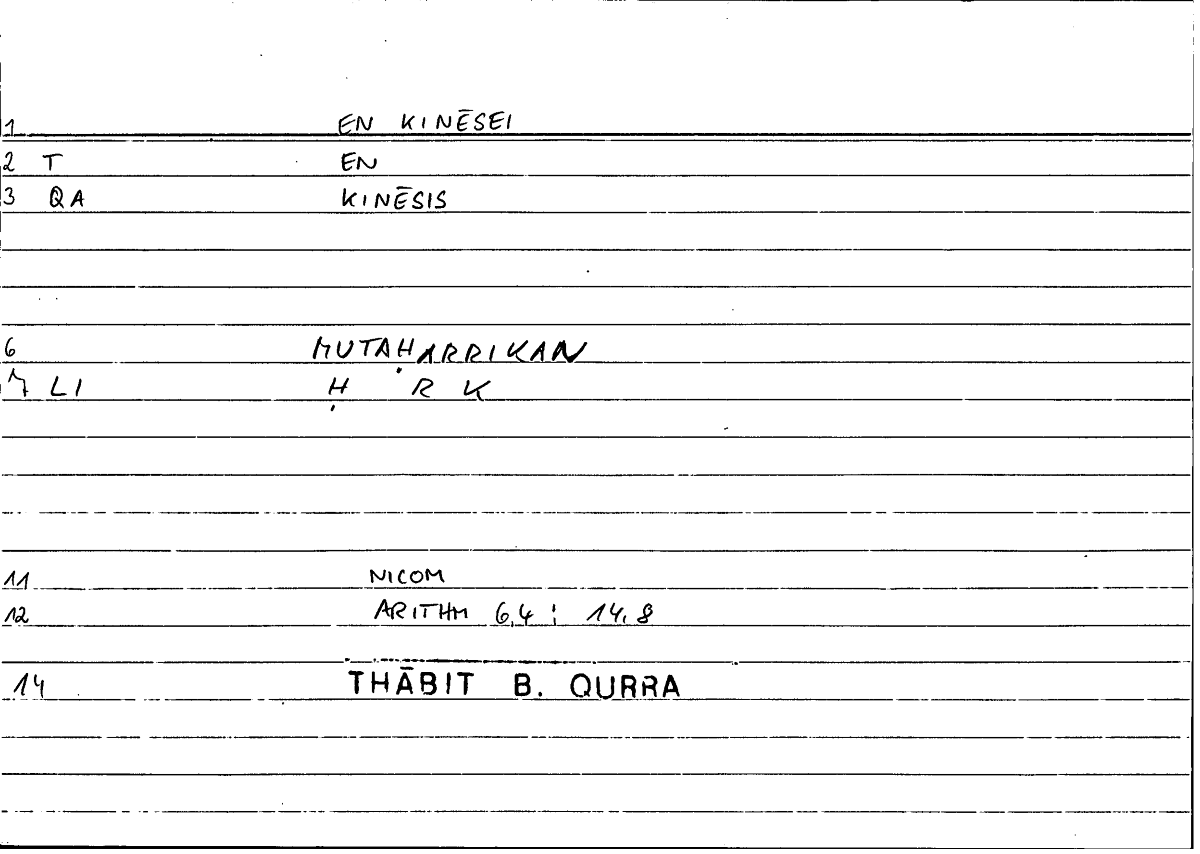 1 EN KINĒSEI
2 T EN
3 QA KINĒSIS
6 MUTAḤARRIKAN
7 LI Ḥ R K
11 NICOM
12 ARITHM 6,4 : 14,8
14 THĀBIT B. QURRA